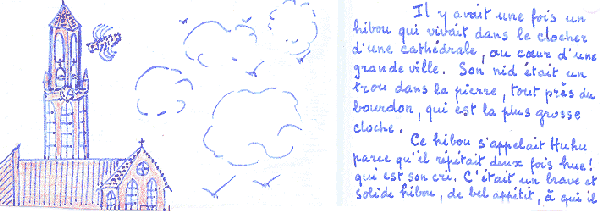 Il y avait une fois un
hibou qui vivait dans le clocher
d'une cathédrale, au cœur d'une
grande ville. Son nid était un
trou dans la pierre, tout près du
bourdon, qui est la plus grosse
cloche.
Ce hibou s'appelait Huhu
parce qu'il répétait deux fois hue!
qui est son cri. C'était un brave et
solide hibou, de bel appétit, à qui il